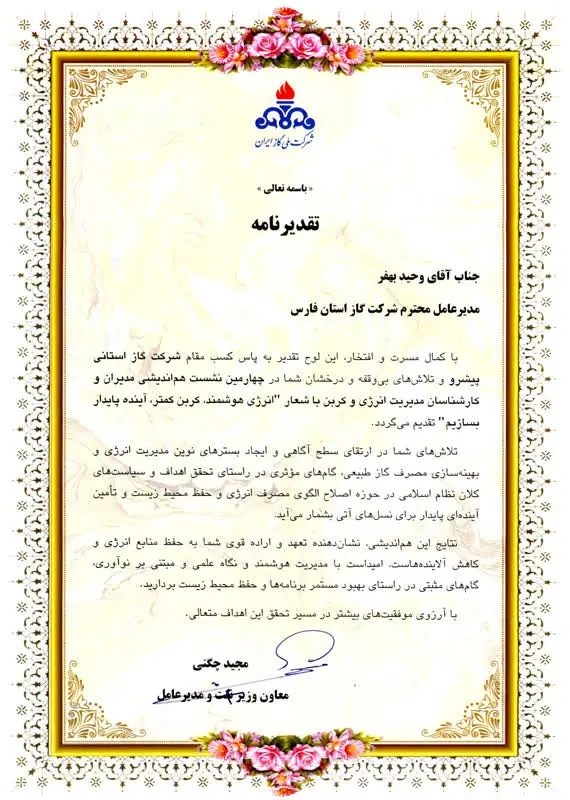 شرکت ملی گاز ایران
« باسمه تعالی »
تقدیرنامه
جناب آقای وحید بهفر
مدیرعامل محترم شرکت گاز استان فارس
با کمال مسرت و افتخار، این لوح تقدیر به پاس کسب مقام شرکت گاز استانی
پیشرو و تلاش‌های بی‌وقفه و درخشان شما در چهارمین نشست هم‌اندیشی مدیران و
کارشناسان مدیریت انرژی و کربن با شعار "انرژی هوشمند، کربن کمتر، آینده پایدار
بسازیم" تقدیم می‌گردد.
تلاش‌های شما در ارتقای سطح آگاهی و ایجاد بسترهای نوین مدیریت انرژی و
بهینه‌سازی مصرف گاز طبیعی، گام‌های مؤثری در راستای تحقق اهداف و سیاست‌های
کلان نظام اسلامی در حوزه اصلاح الگوی مصرف انرژی و حفظ محیط زیست و تأمین
آینده‌ای پایدار برای نسل‌های آتی بشمار می‌آید.
نتایج این هم‌اندیشی، نشان‌دهنده تعهد و اراده قوی شما به حفظ منابع انرژی و
کاهش آلاینده‌هاست. امیداست با مدیریت هوشمند و نگاه علمی و مبتنی بر نوآوری،
گام‌های مثبتی در راستای بهبود مستمر برنامه‌ها و حفظ محیط زیست بردارید.
با آرزوی موفقیت‌های بیشتر در مسیر تحقق این اهداف متعالی.
مجید چگنی
معاون وزیر نفت و مدیرعامل